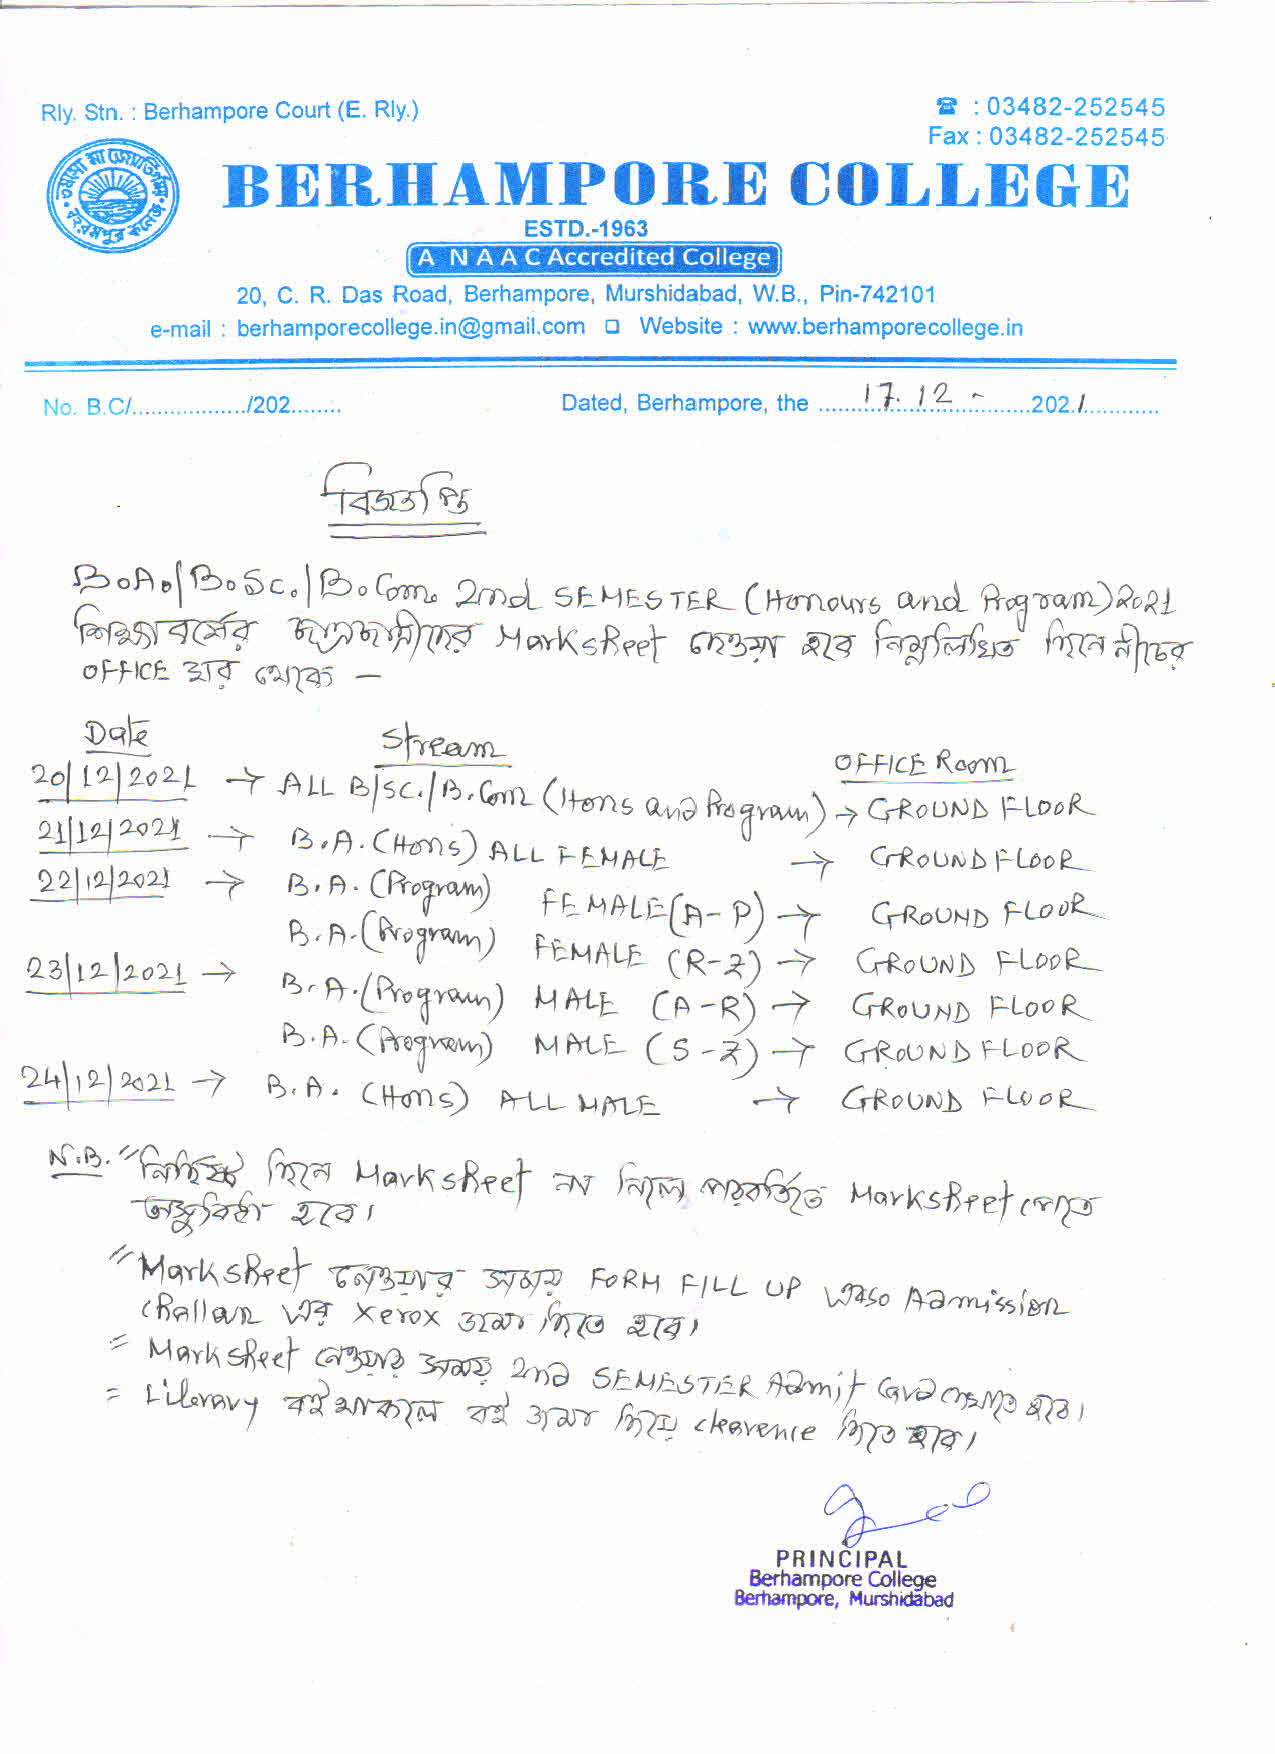 Rly. Stn. : Berhampore Court (E. Rly.)
☎ : 03482-252545
Fax : 03482-252545
তমসো মা জ্যোতির্গময়
বহরমপুর কলেজ
BERHAMPORE COLLEGE
ESTD.-1963
A NAAC Accredited College
20, C. R. Das Road, Berhampore, Murshidabad, W.B., Pin-742101
e-mail : berhamporecollege.in@gmail.com Website : www.berhamporecollege.in
No. B.C/................../202........ Dated, Berhampore, the ......17.12-......202.1............
বিজ্ঞপ্তি
B.A./B.Sc./B.Com. 2nd SEMESTER (Honours and Program) 2021
শিক্ষাবর্ষের ছাত্রছাত্রীদের Marksheet দেওয়া হবে নিম্নলিখিত দিনে নীচের
OFFICE ঘর থেকে —
Date Stream OFFICE Room
20/12/2021 → ALL B/SC./B.Com (Hons and Program) → GROUND FLOOR
21/12/2021 → B.A. (Hons) ALL FEMALE → GROUND FLOOR
22/12/2021 → B.A. (Program) FEMALE (A-P) → GROUND FLOOR
B.A. (Program) FEMALE (R-Z) → GROUND FLOOR
23/12/2021 → B.A. (Program) MALE (A-R) → GROUND FLOOR
B.A. (Program) MALE (S-Z) → GROUND FLOOR
24/12/2021 → B.A. (Hons) ALL MALE → GROUND FLOOR
N.B. " নির্দিষ্ট দিনে Marksheet না নিলে পরবর্তিতে Marksheet পেতে
অসুবিধা হবে।
" Marksheet নেওয়ার সময় FORM FILL UP এবং Admission
challan এর Xerox জমা দিতে হবে।
= Marksheet নেওয়ার সময় 2nd SEMESTER Admit Card দেখাতে হবে।
= Liberary বই থাকলে বই জমা দিয়ে clearence নিতে হবে।
PRINCIPAL
Berhampore College
Berhampore, Murshidabad